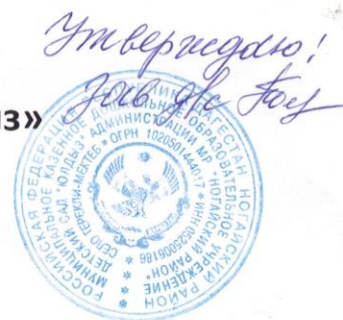 Утверждаю!
Зав д/с
ыз»
РОССИЙСКАЯ ФЕДЕРАЦИЯ ДАГЕСТАН НОГАЙСКИЙ РАЙОН
МУНИЦИПАЛЬНОЕ КАЗЕННОЕ ДОШКОЛЬНОЕ ОБРАЗОВАТЕЛЬНОЕ УЧРЕЖДЕНИЕ
ДЕТСКИЙ САД "ЮЛДЫЗ" АДМИНИСТРАЦИИ МР "НОГАЙСКИЙ РАЙОН"
СЕЛО ТЕРЕКЛИ-МЕКТЕБ * ОГРН 1020501444017 * ИНН 0525006186